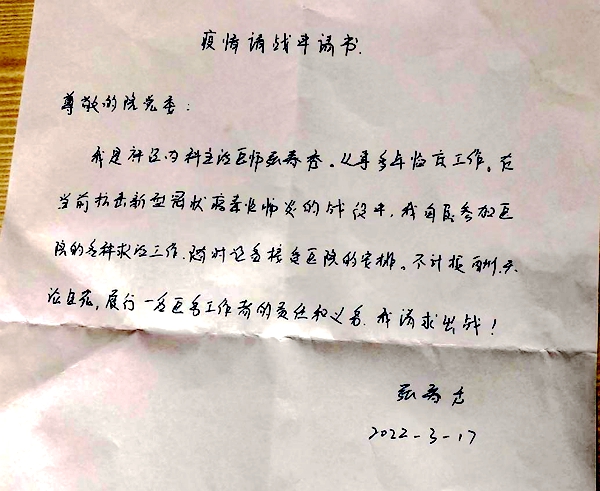 疫情请战申请书.
尊敬的院党委:
我是神经内科主治医师张春 。从事多年临床工作。在
当前抗击新型冠状病毒性肺炎的战役中,我自愿参加医
院的各种救治工作.随时准备接受医院的安排。不计报酬.无
论生死,履行一名医务工作者的责任和义务.我请求出战!
张春
2022-3-17